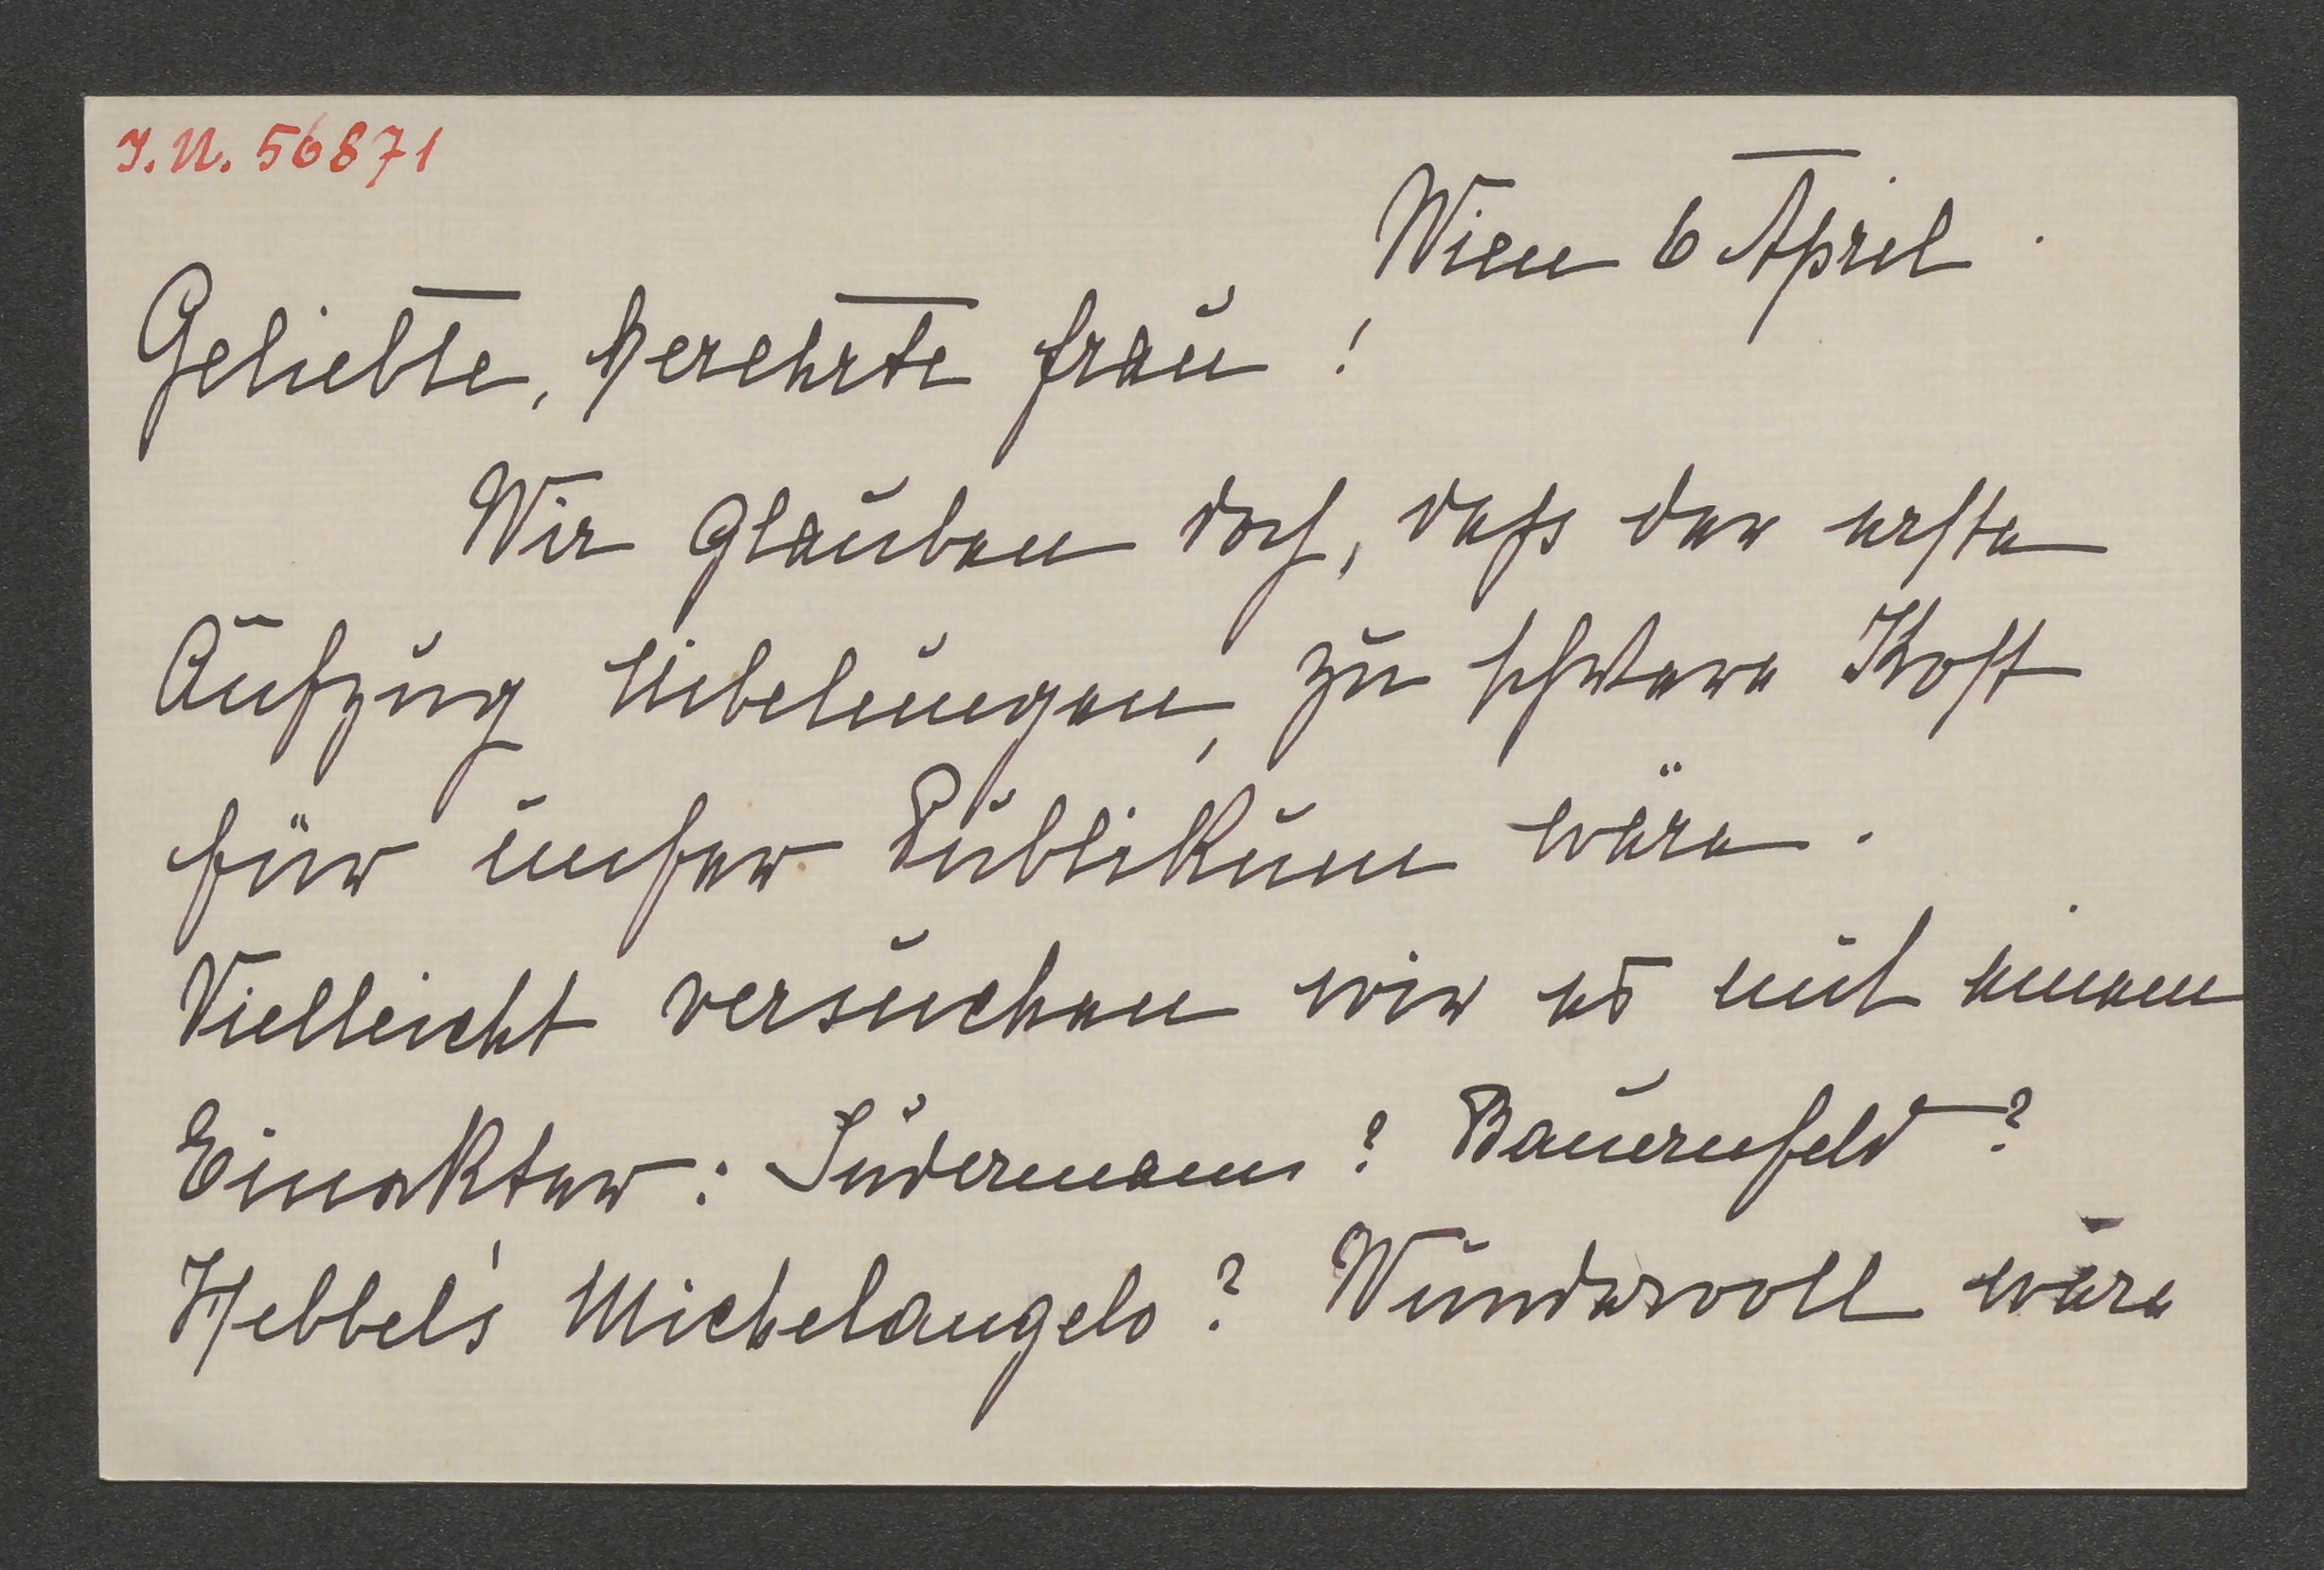 I. N. 56871
Wien 6 April.
Geliebte, Verehrte Frau!
Wir glauben doch, daß der erste
Aufzug Nibelungen, zu schwere Kost
für unser Publikum wäre.
Vielleicht versuchen wir es mit einem
Einakter: Sudermann? Bauernfeld?
Hebbel's Michelangelo? Wundervoll wäre